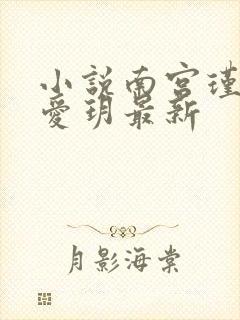 小說南宮瑾
愛玥最新
月影海棠